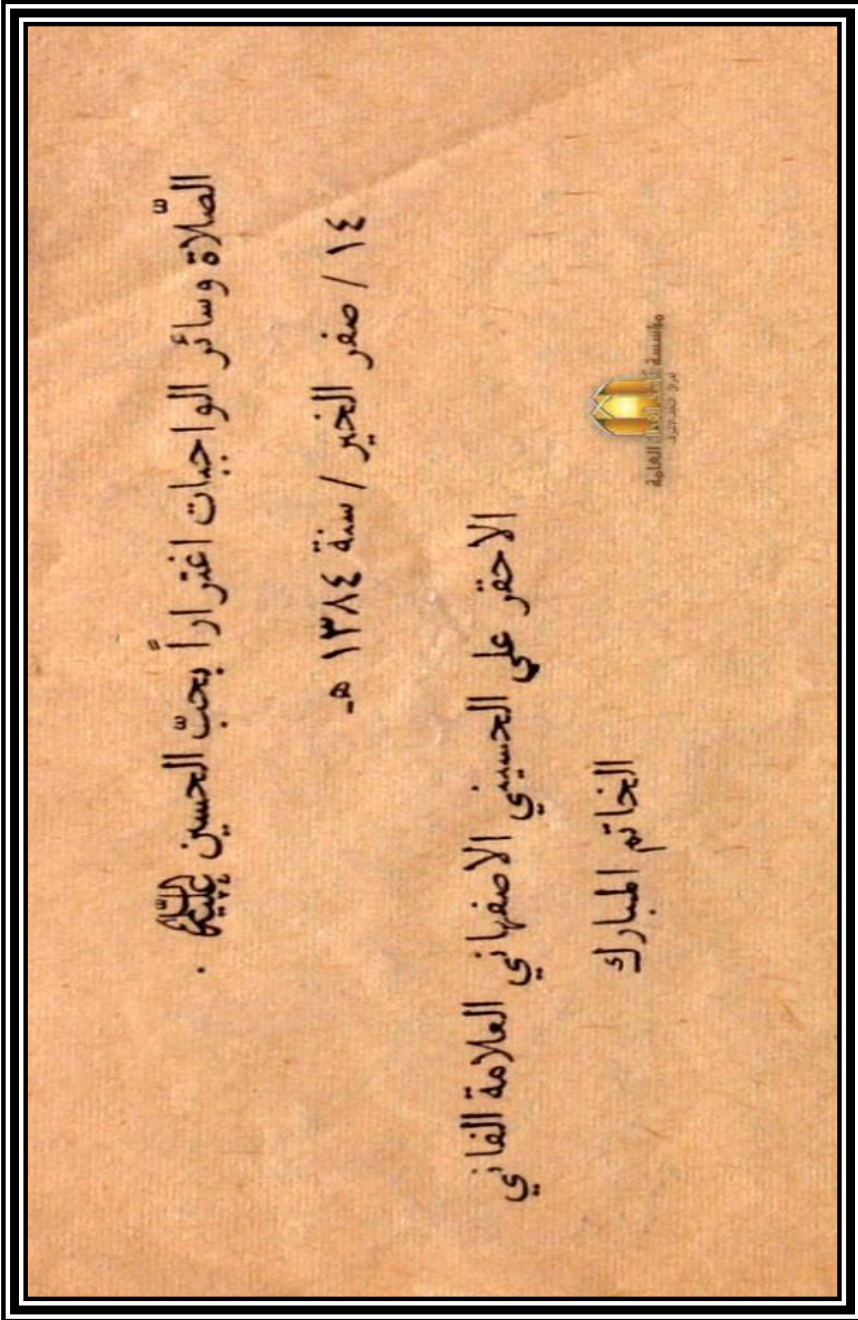 الصّلاة وسائر الواجبات اغتراراً بحبّ الحسين عليه السلام .
١٤ / صفر الخير / سنة ١٣٨٤ هـ
الاحقر علي الحسيني الاصفهاني العلامة الفاني
الخاتم المبارك
مؤسسة
العامة